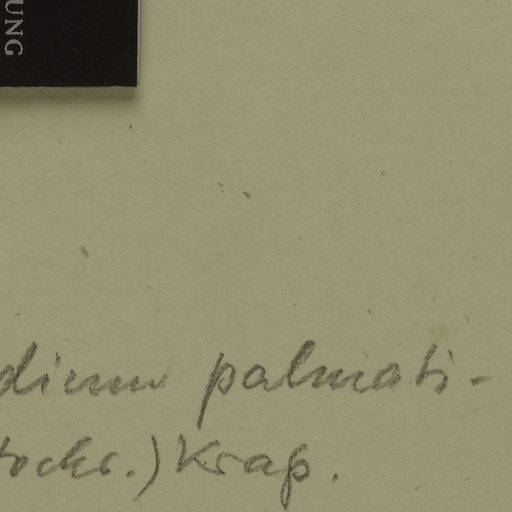 UNG
dium palmati-
tochr.) Krap.